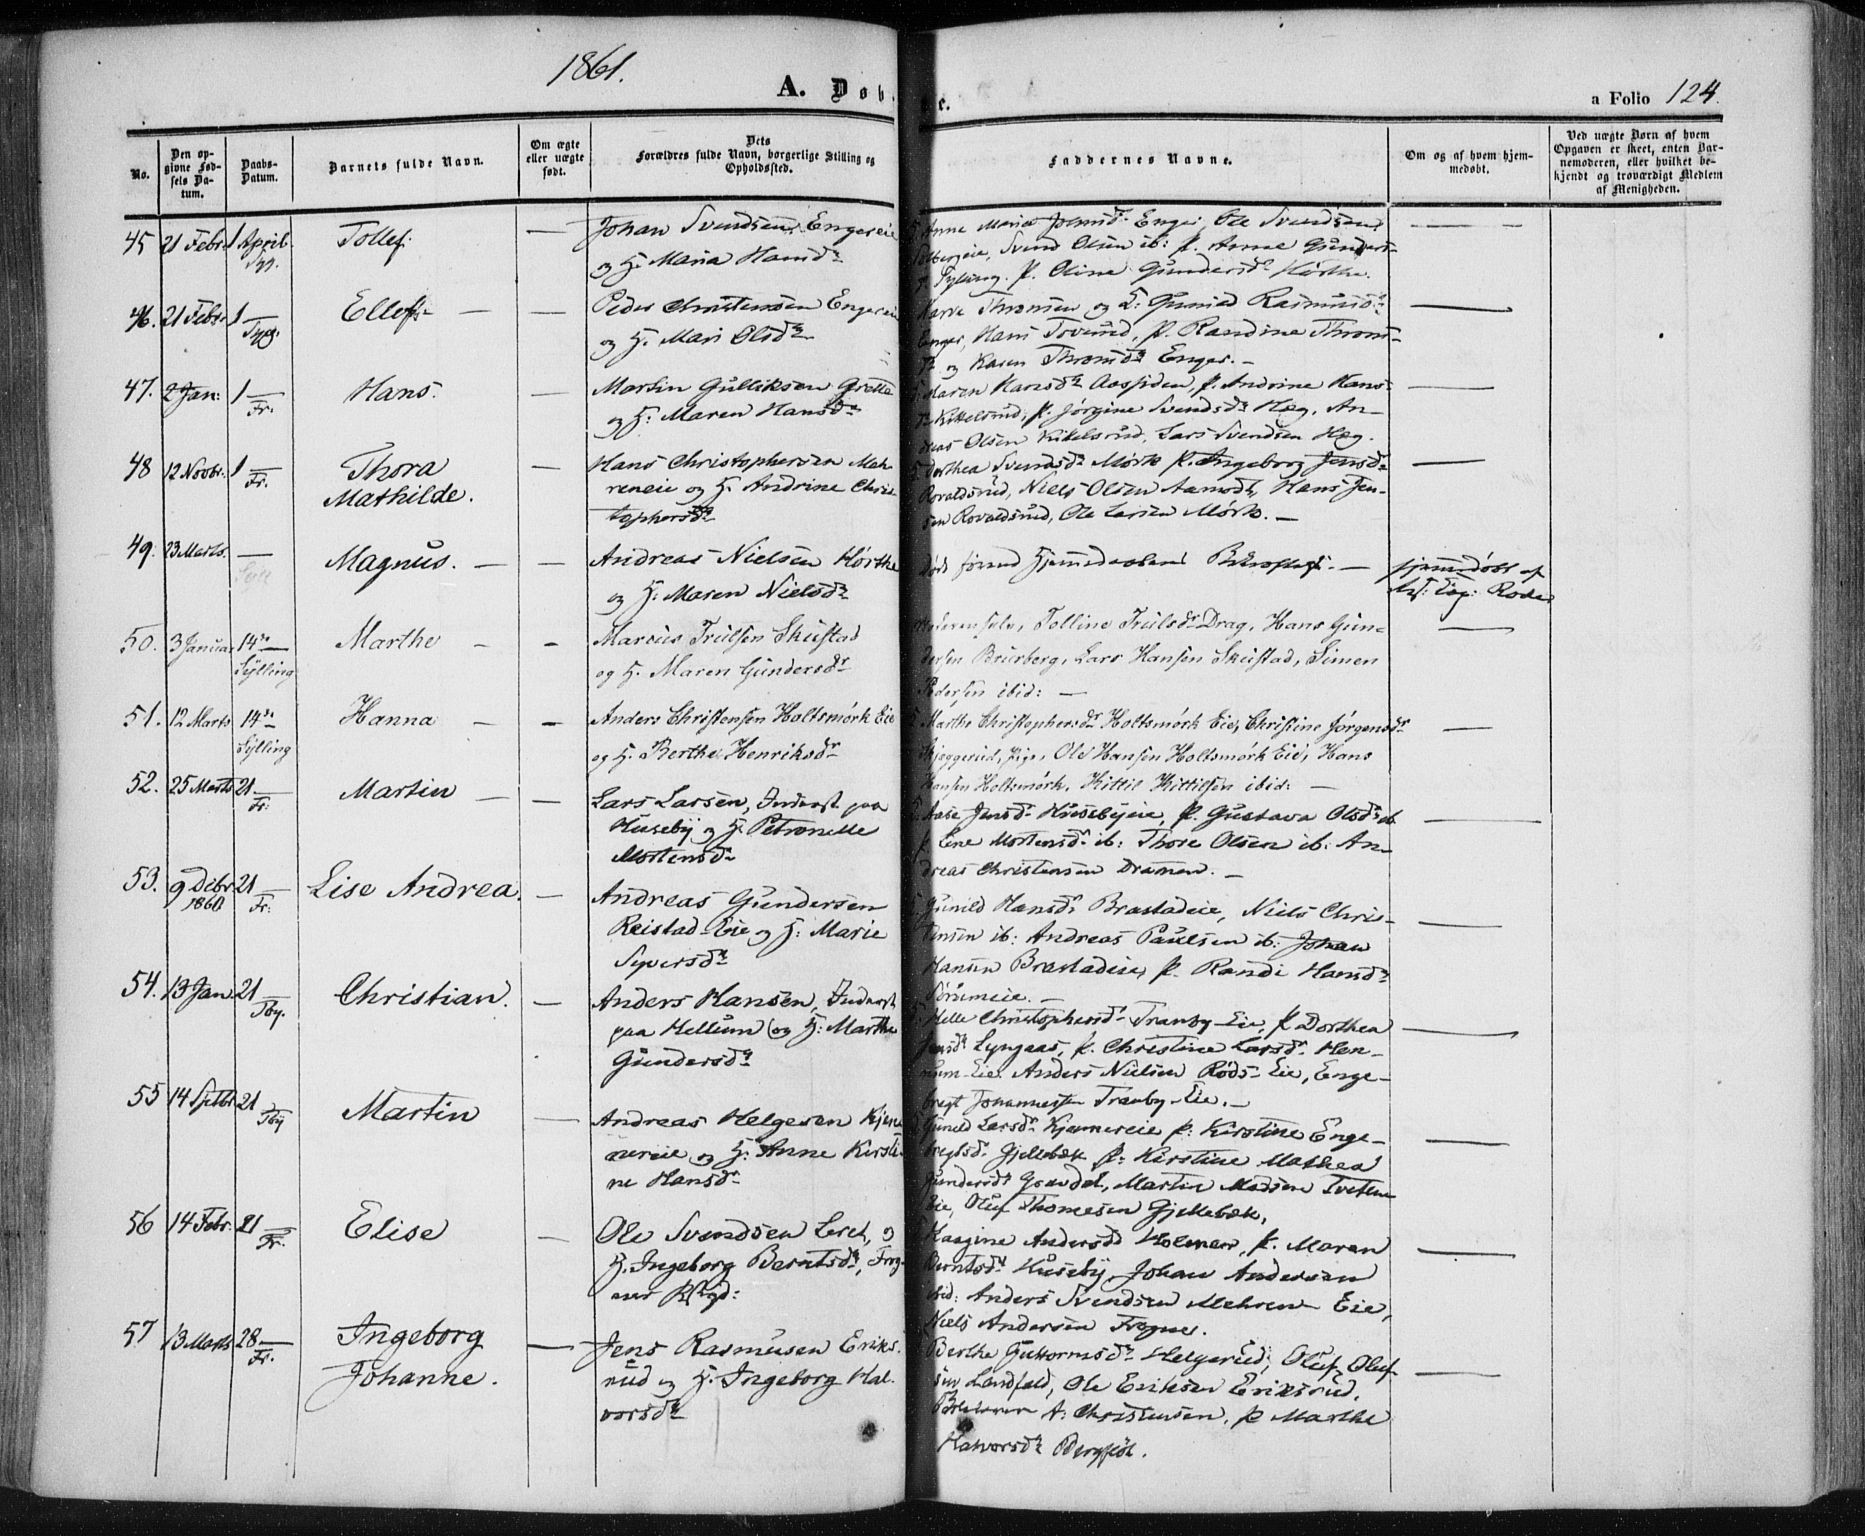 1861.
A. Døb
a Folio 124.
No.
Den opgivne Fødsels Datum.
Daabs-Datum.
Barnets fulde Navn.
Om ægte eller uægte født.
Dets Forældres fulde Navn, borgerlige Stilling og Opholdssted.
Faddernes Navne.
Om og af hvem hjemmedøbt.
Ved uægte Børn af hvem Opgaven er skeet, enten Barnemoderen, eller hvilket bekjendt og troværdigt Medlem af Menigheden.
45 21 Febr. 1 April Tollef. — Johan Svendsen Engereie
og H. Maria Hansdr
Anne Maria Enger, Ole Svendsen
Svend Olsen ib: p. Anne Gunders-
Sylling. p. Oline Gundersdr Hørthe.
46. 21 Febr. 1 — Ellef. — — Peder Christensen Engereie
og H. Mari Olsdr
Thronsen og Gunild Rasmusdr
Enger, Hans p. Randine Thron-
og Karen Thronsdr Enger. —
47. 2 Jan: 1 — Fr. Hans. — Martin Gulliksen Grette
og H. Maren Hansdr
Maren Hansdr Aassiden, p. Andrine Hans-
Kittelsrud, p. Jørgine Svendsdr Hæg, An-
dreas Olsen Kittelsrud, Lars Svendsen Hæg.
48 12 Novbr. 1 — Fr. Thora
Mathilde. — Hans Christophersen Meh-
reneie og H. Andrine Chris-
tophersdr
Dorthea Svendsdr Mørk p. Ingeborg Jensdr
Rovaldsrud, Niels Olsen Aamodt, Hans Jen-
sen Rovaldsrud, Ole Larsen Mørk. —
49. 23 Marts. — Magnus. — — Andreas Nielsen Hørthe
og H. Maren Nielsdr
Død forend Hjemmedaaben — hjemmedøbt af
50. 3 Januar 14de — Sylling Marthe — — Marcus Trulsen Skustad
og H. Maren Gundersdr
Moderen selv, Tolline Trulsdr Drag, Hans Gun-
dersen Brurberg, Lars Hansen Skustad, Simen
Pedersen ibid: —
51. 12 Marts 14de — Sylling Hanna — — Anders Christensen Holtsmørk Eie
og H. Berthe Henriksdr
Marthe Christophersdr Holtsmørk Eie, Christine Jørgensdr
pige, Ole Hansen Holtsmørk Eie, Hans
Hansen Holtsmørk, Kittil Kittilsen ibid: —
52. 25 Marts 21 — Fr. Martin — — Lars Larsen, Inderst paa
Huseby og H. Petronelle
Mortensdr
Aase Jensdr Husebyeie, p. Gustava Olsdr ib.
p. Lene Mortensdr ib: Thore Olsen ib: An-
dreas Christensen Dramen. —
53. 9 Decbr 1860 21 — Fr: Lise Andrea. — Andreas Gundersen
Reistad-Eie og H: Marie
Syversdr
Gunild Hansdr Brastadeie, Niels Chris-
tensen ib: Andreas Paulsen ib: Johan
Hansen Brastadeie, p. Randi Hansdr
54. 13 Jan 21 Christian. — Anders Hansen, Inderst
paa Hellum og H: Marthe
Gundersdr
Helle Christophersdr Tranby-Eie, p. Dorthea
Jensdr Lyngaas, p. Christine Larsdr Hen-
num-Eie. Anders Nielsen Røds-Eie, Enge-
bregt Johannesen Tranby-Eie. —
55 14 Septbr 21 Martin — Andreas Helgesen Kjen-
nereie og H: Anne Kirsti-
ne Hansdr
Gunild Larsdr Kjennereie p: Kirstine Enge-
bregtsdr Gjellebæk p: Kirstine Mathea
Gundersdr Martin Madsen Tveten-
Eie, Oluf Thomesen Gjellebæk,
56 14 Febr. 21 — Fr. Elise — Ole Svendsen Leret, og
H. Ingeborg Berntsdr, Frog-
ner
Andersdr Holmen, p. Maren
Berntsdr Huseby, Johan Andersen
ibid: Anders Svendsen Mehren-Eie,
Niels Andersen Frogner.
57 13 Marts 28 — Fr. Ingeborg
Johanne. — Jens Rasmusen Eriks-
rud og H. Ingeborg Hal-
vorsdr
Berthe Guttormsdr Helgerud, Oluf Oluf-
sen Landfald, Ole Eriksen Eriksrud,
A. Christensen, p Marthe
Halvorsdr